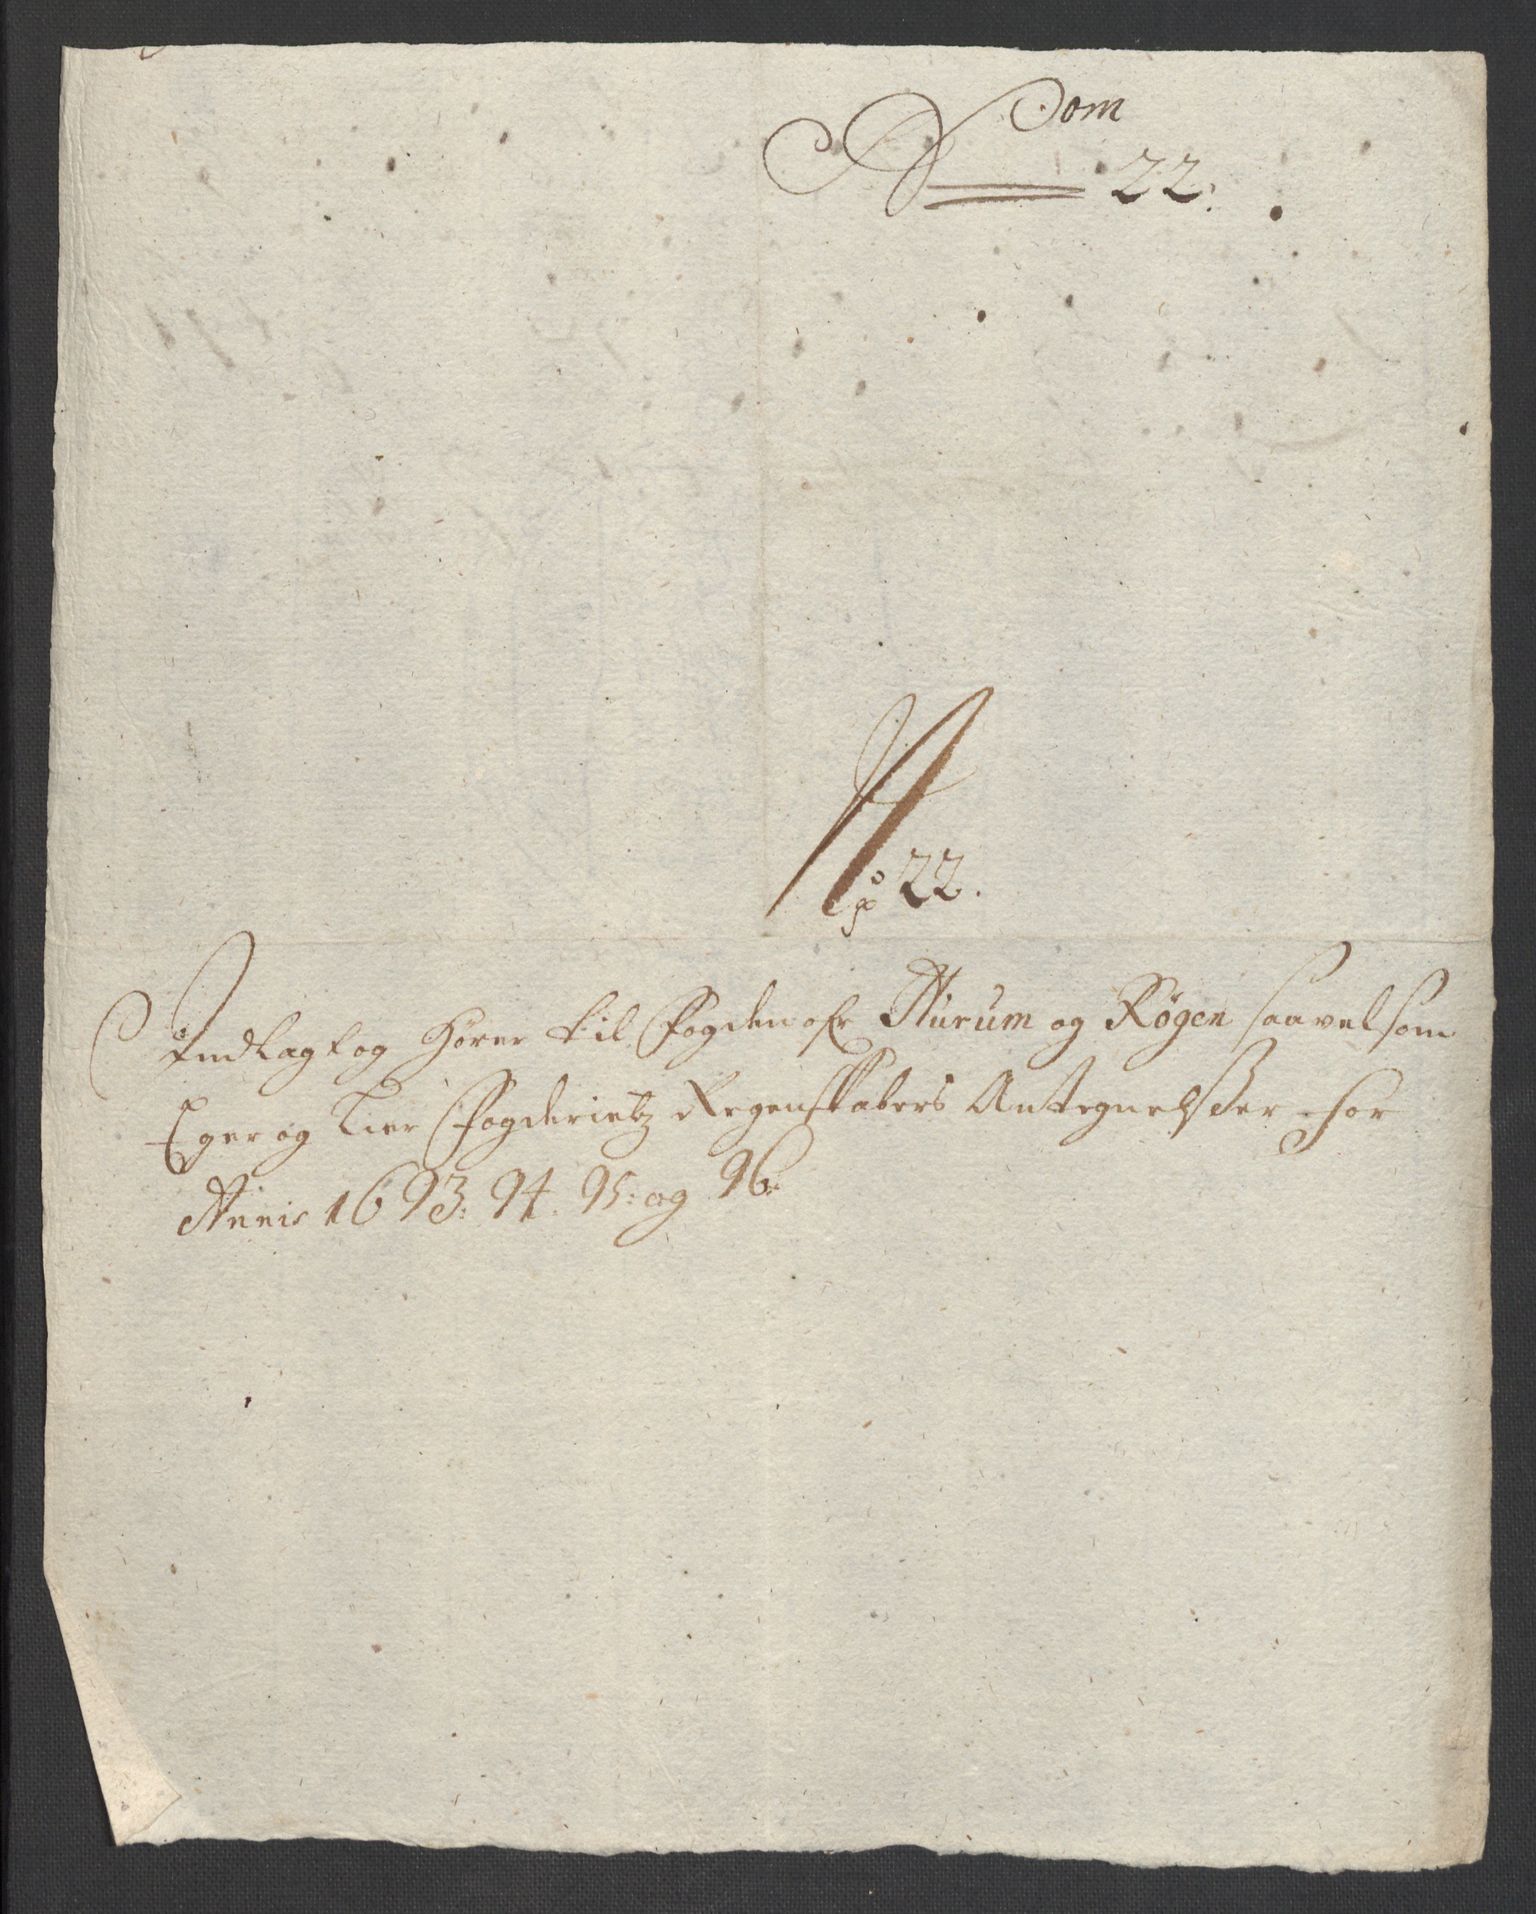 N Som
22.
No 22.
Indlagt og hører til Fogden ofr Hurum og Røgen saavelsom
Eger og Lier Fogderietz Regenskabers Antegnelsser for
Annis 1693: 94. 95: og 96: